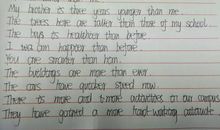 My brother is three years younger than me.
The trees here are taller than those of my school.
The boy is healthier than before.
I was happier than before.
You are smarter than him.
The buildings are more than ever.
The cars have quicker speed now.
There is more and more activities on our campus.
They have gotten a more hard-working attitude.